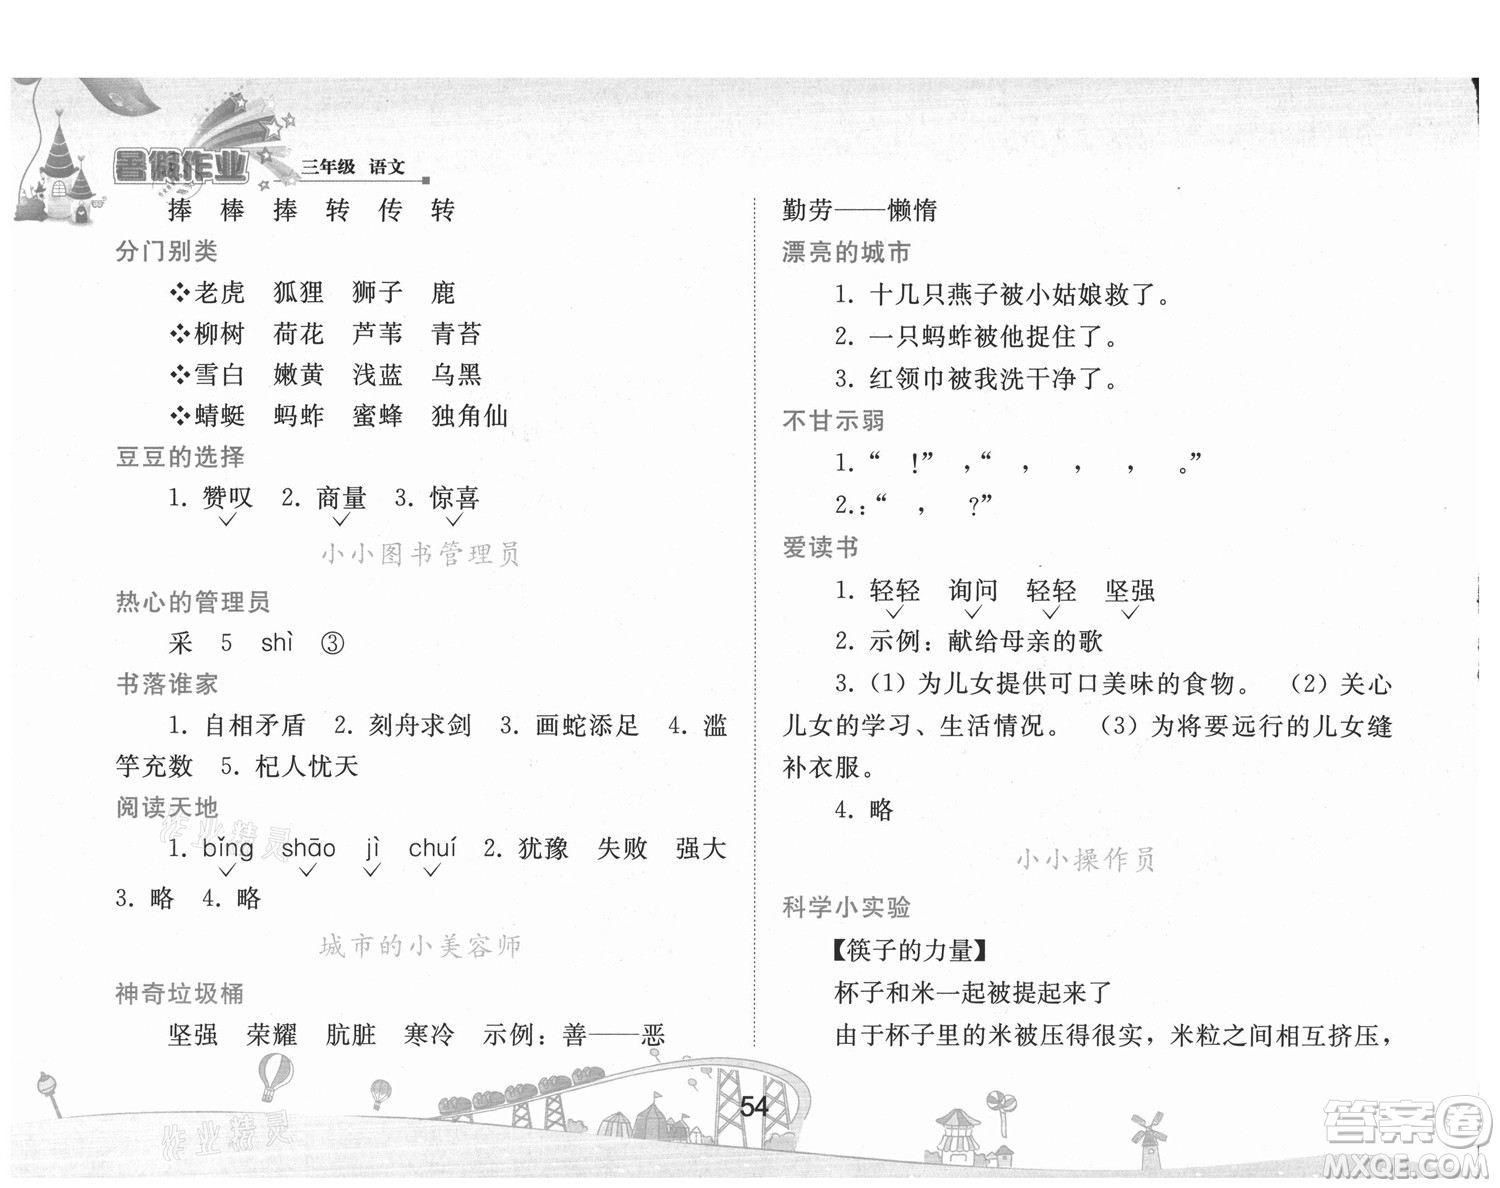 暑假作业 三年级 语文
捧 棒 捧 转 传 转
分门别类
❖老虎 狐狸 狮子 鹿
❖柳树 荷花 芦苇 青苔
❖雪白 嫩黄 浅蓝 乌黑
❖蜻蜓 蚂蚱 蜜蜂 独角仙
豆豆的选择
1. 赞叹 2. 商量 3. 惊喜
小小图书管理员
热心的管理员
采 5 shì ③
书落谁家
1. 自相矛盾 2. 刻舟求剑 3. 画蛇添足 4. 滥
竽充数 5. 杞人忧天
阅读天地
1. bǐng shāo jì chuí 2. 犹豫 失败 强大
3. 略 4. 略
城市的小美容师
神奇垃圾桶
坚强 荣耀 肮脏 寒冷 示例：善——恶
勤劳——懒惰
漂亮的城市
1. 十几只燕子被小姑娘救了。
2. 一只蚂蚱被他捉住了。
3. 红领巾被我洗干净了。
不甘示弱
1. “ !” ，“ ， ， ， 。”
2. ：“ ， ?”
爱读书
1. 轻轻 询问 轻轻 坚强
2. 示例：献给母亲的歌
3. （1）为儿女提供可口美味的食物。 （2）关心
儿女的学习、生活情况。 （3）为将要远行的儿女缝
补衣服。
4. 略
小小操作员
科学小实验
【筷子的力量】
杯子和米一起被提起来了
由于杯子里的米被压得很实，米粒之间相互挤压，
54
作业精灵
作业精灵
答案卷
MXQE.COM